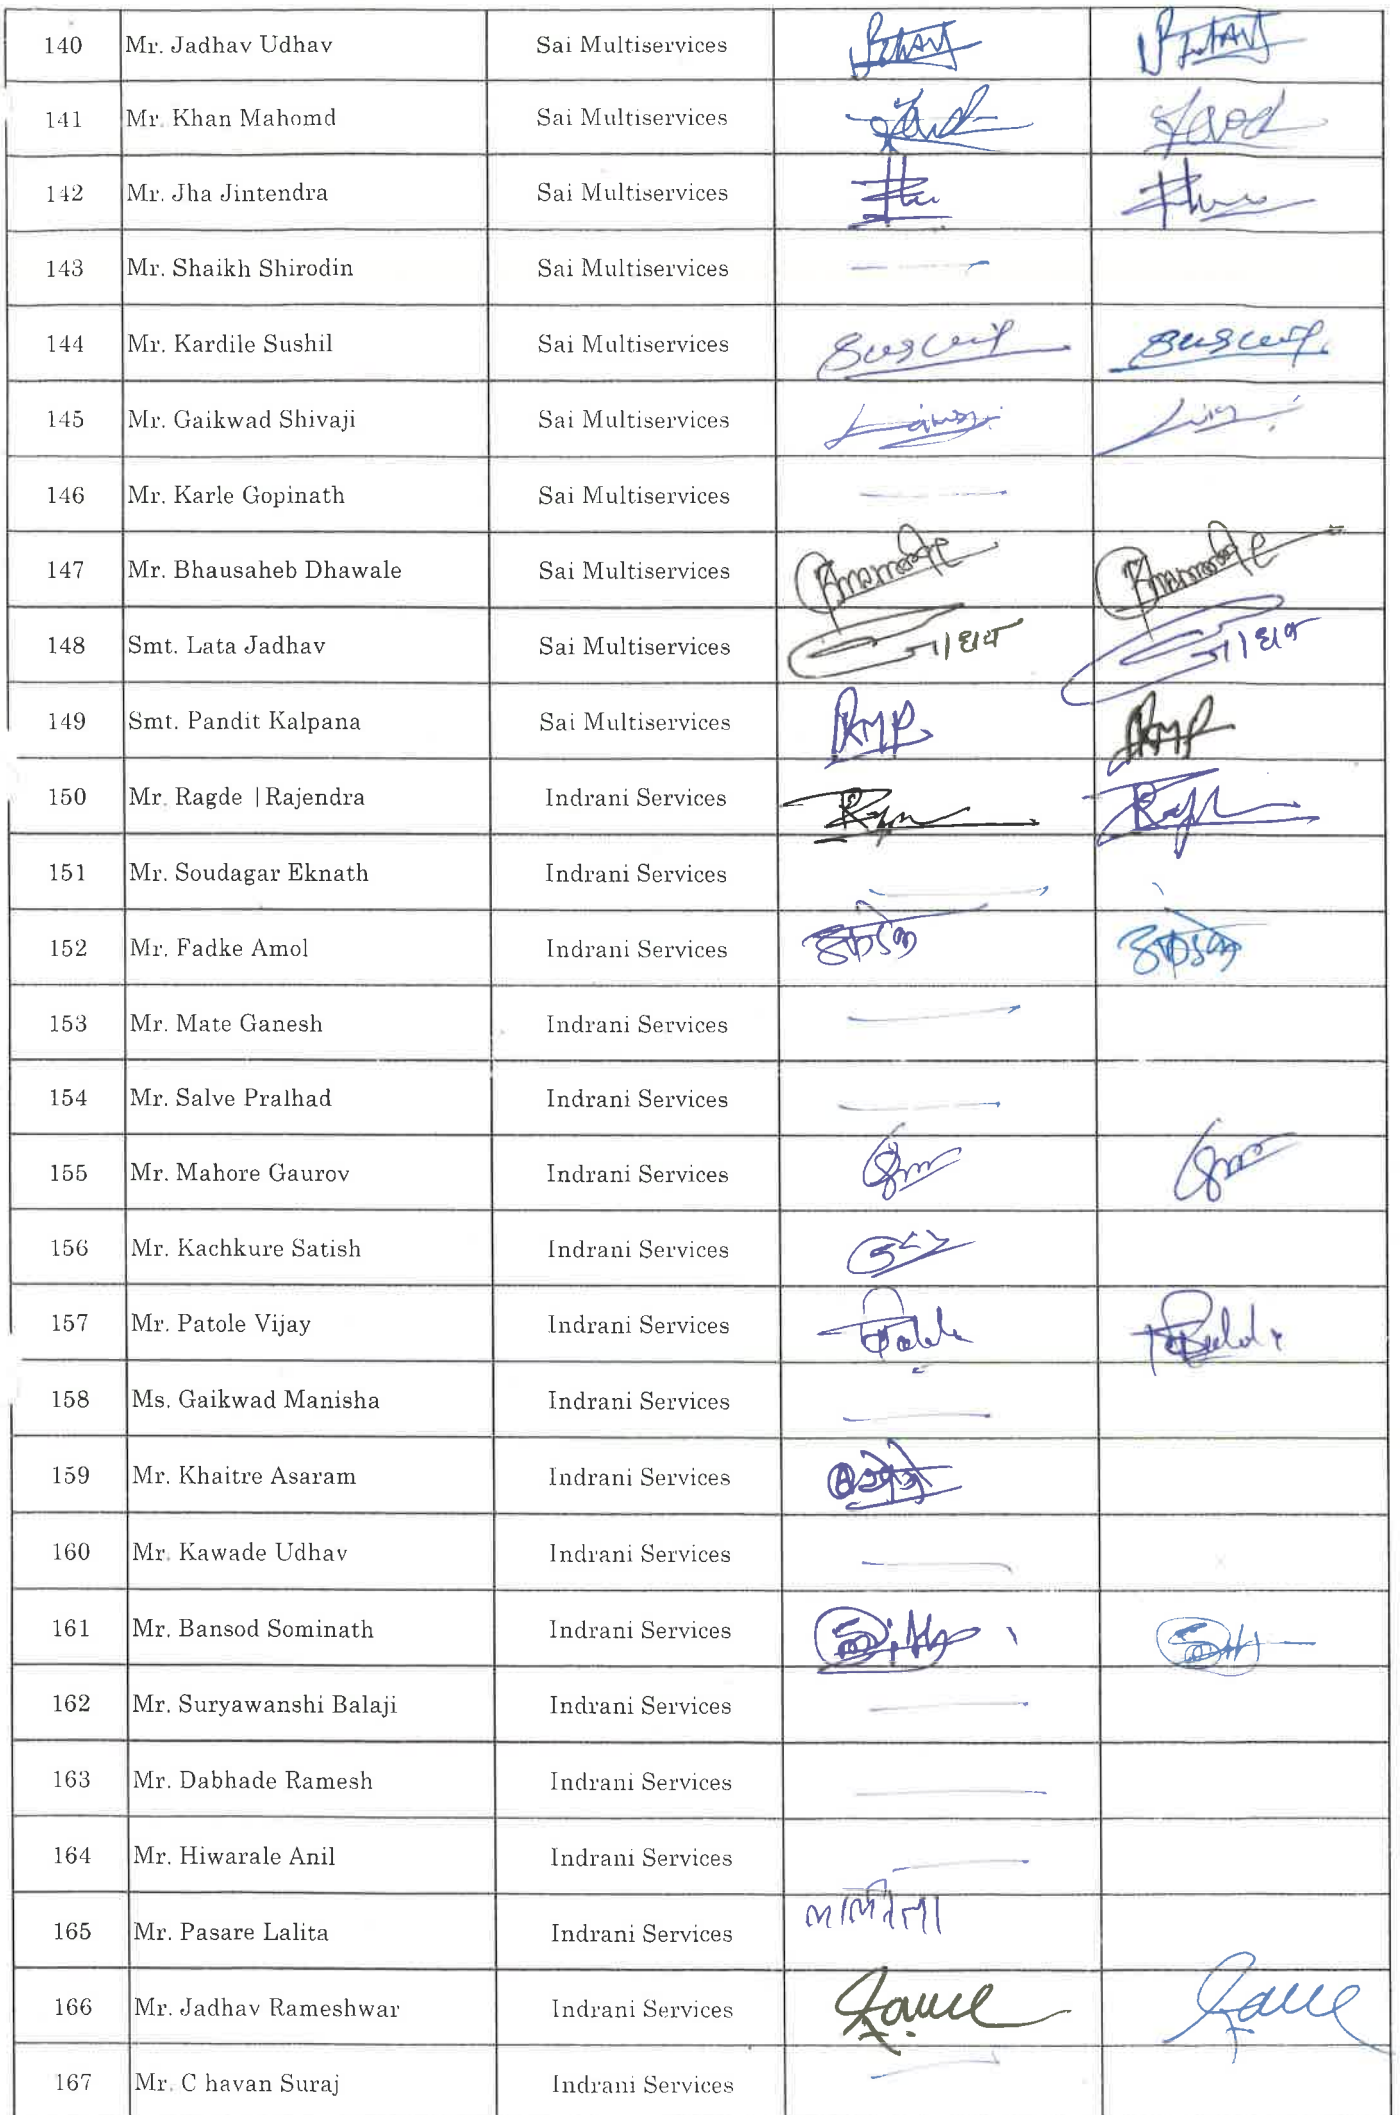 140 Mr. Jadhav Udhav Sai Multiservices
141 Mr. Khan Mahomd Sai Multiservices
142 Mr. Jha Jintendra Sai Multiservices
143 Mr. Shaikh Shirodin Sai Multiservices
144 Mr. Kardile Sushil Sai Multiservices
145 Mr. Gaikwad Shivaji Sai Multiservices
146 Mr. Karle Gopinath Sai Multiservices
147 Mr. Bhausaheb Dhawale Sai Multiservices
148 Smt. Lata Jadhav Sai Multiservices
149 Smt. Pandit Kalpana Sai Multiservices
150 Mr. Ragde |Rajendra Indrani Services
151 Mr. Soudagar Eknath Indrani Services
152 Mr. Fadke Amol Indrani Services
153 Mr. Mate Ganesh Indrani Services
154 Mr. Salve Pralhad Indrani Services
155 Mr. Mahore Gaurov Indrani Services
156 Mr. Kachkure Satish Indrani Services
157 Mr. Patole Vijay Indrani Services
158 Ms. Gaikwad Manisha Indrani Services
159 Mr. Khaitre Asaram Indrani Services
160 Mr. Kawade Udhav Indrani Services
161 Mr. Bansod Sominath Indrani Services
162 Mr. Suryawanshi Balaji Indrani Services
163 Mr. Dabhade Ramesh Indrani Services
164 Mr. Hiwarale Anil Indrani Services
165 Mr. Pasare Lalita Indrani Services
166 Mr. Jadhav Rameshwar Indrani Services
167 Mr. C havan Suraj Indrani Services